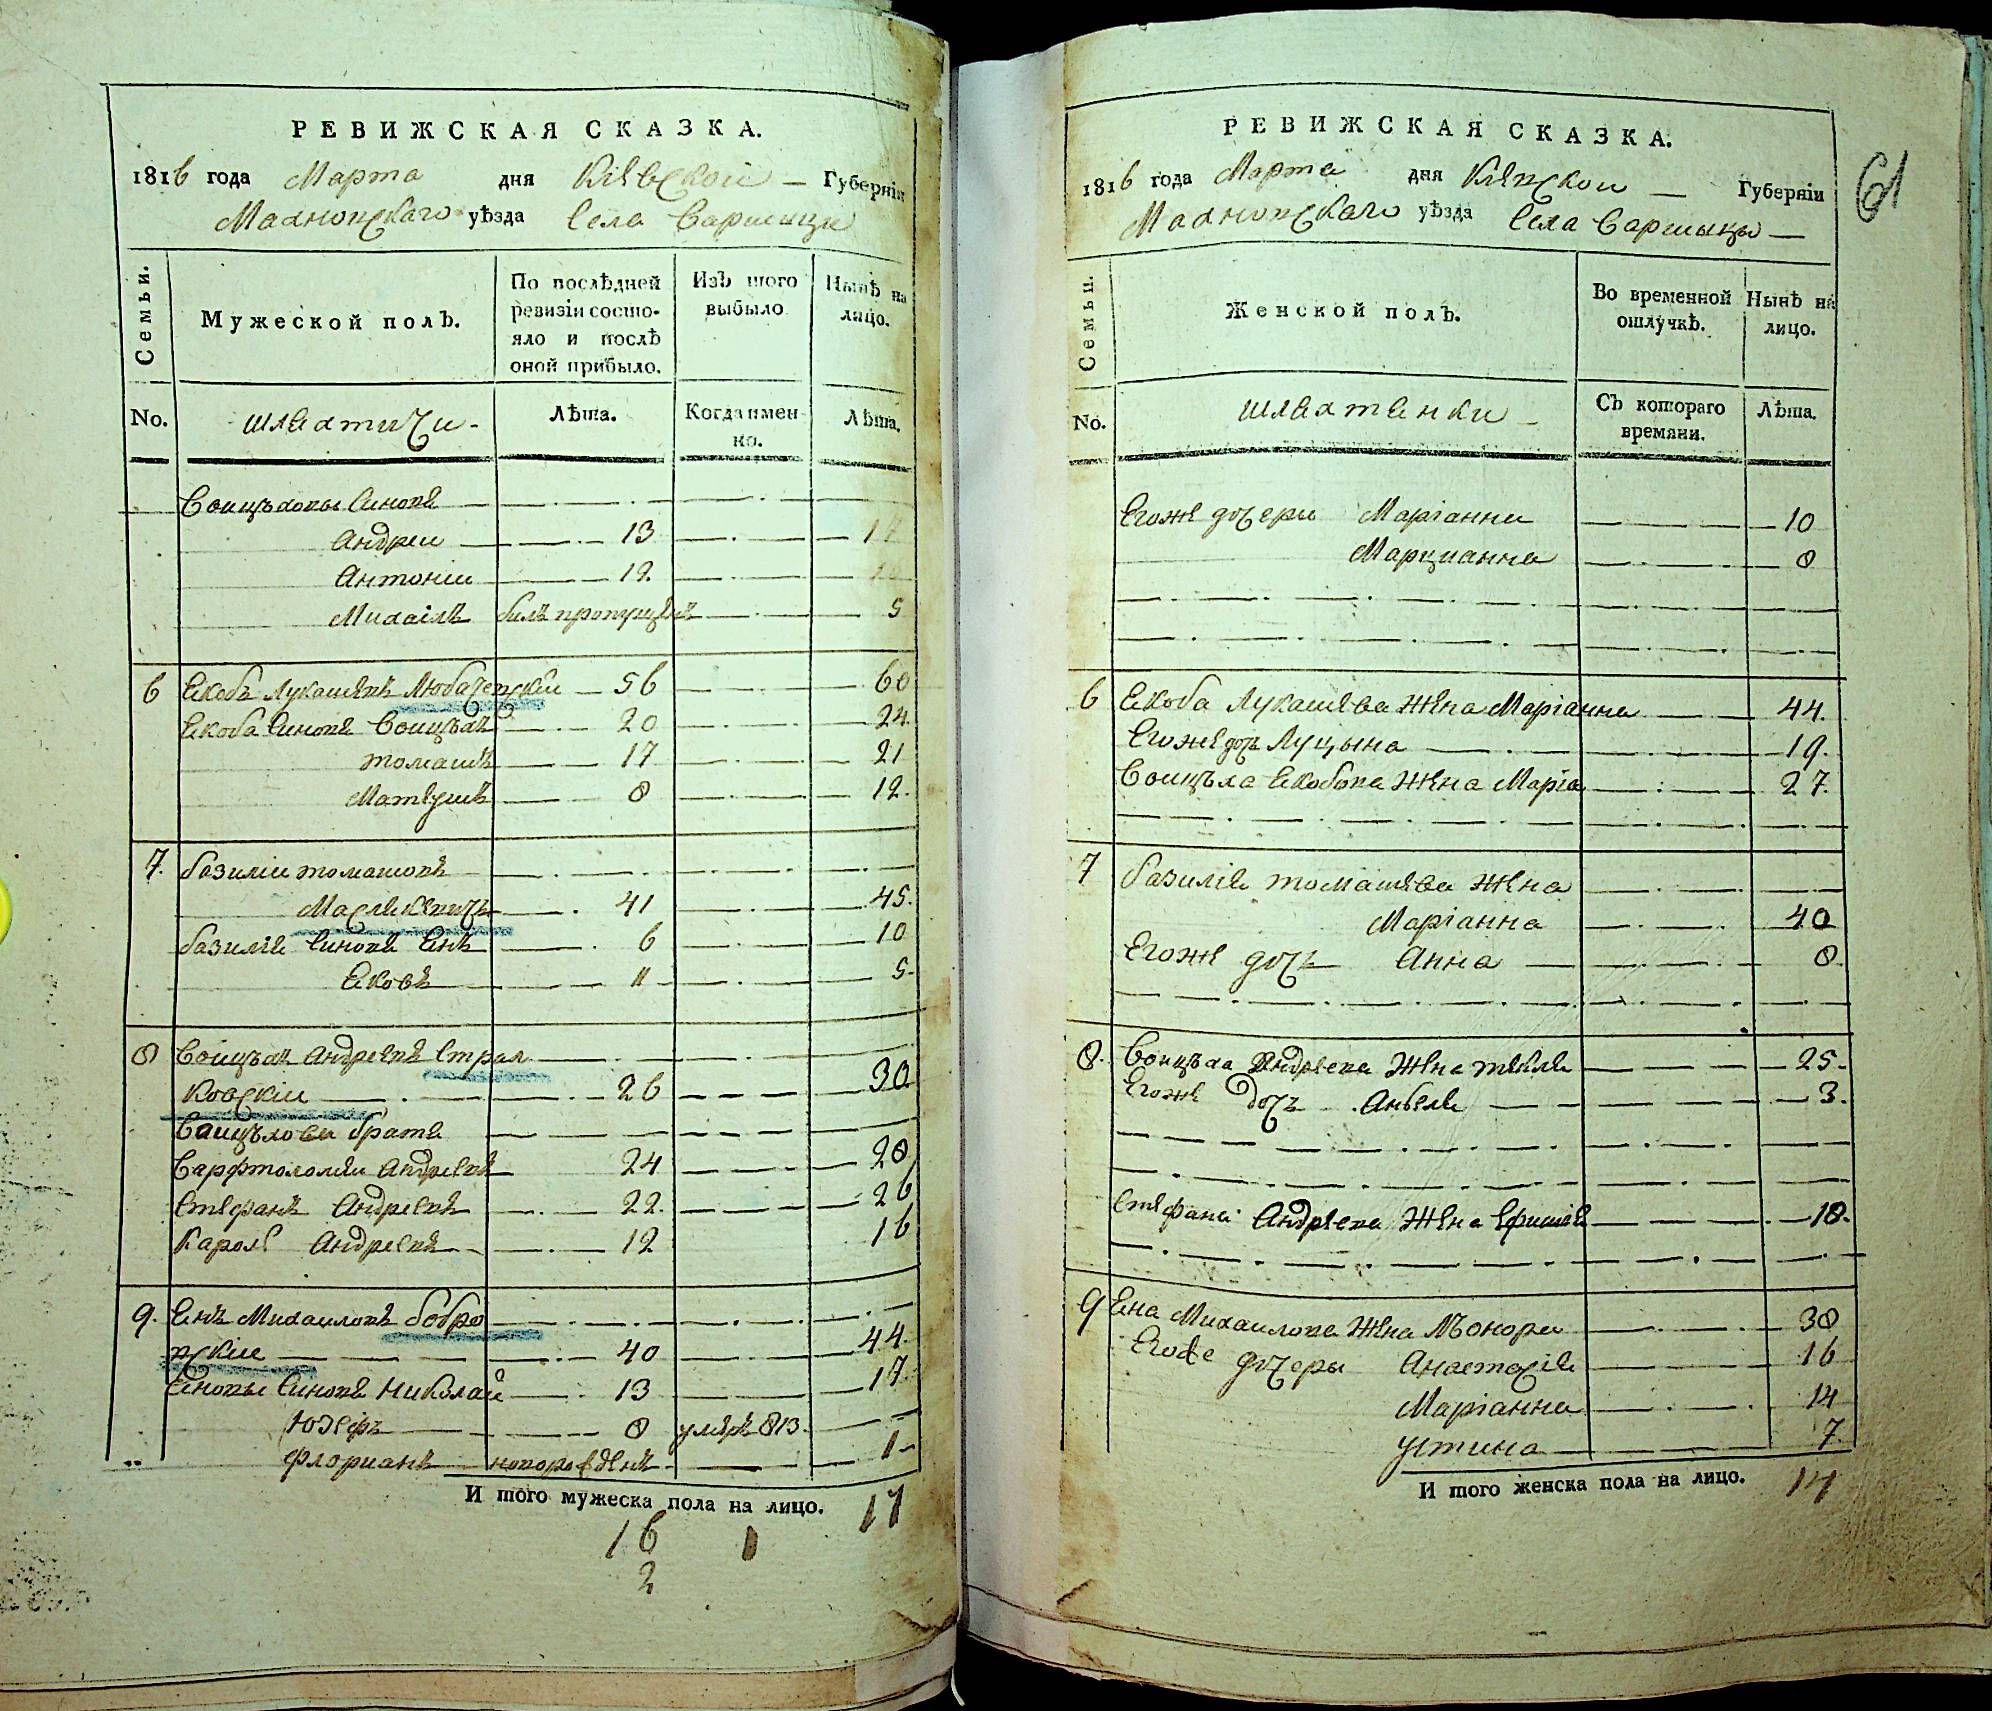 РЕВИЖСКАЯ СКАЗКА.
1816 года Марта дня Кіевской Губерніи
Махновскаго уѣзда Села Варшицы
Семьи.
Мужеской полъ.
По послѣдней ревизіи состояло и послѣ оной прибыло.
Изъ того выбыло
Нынѣ на лицо.
No. шляхтичи Лѣта. Когда именно. Лѣта.
Воицѣховы Синовя
Андреи 13 17
Антоніи 12 16
Михаілъ билъ пропущенъ 5
6 Якобъ Лукашевъ Любачевскіи 56 60
Якоба Синовя Воицѣхъ 20 24.
томашъ 17 21
Матеушъ 8 12.
7. базиліи томашовъ
Маслякевичъ 41 45.
базилія Синовя Янъ 6 10
Яковъ 11 5.
8 Воицѣхъ Андреевъ Страл
ковскіи 26 30
Воицѣхови братя
Варфтоломѣи Андреевъ 24 28
Стефанъ Андреевъ 22. 26
Кароль Андреевъ 12 16
9. Янъ Михаиловъ бобро
вскіи 40 44.
Яновы Синовя Николаи 13 17.
Юзефъ 8 умеръ 813.
флориянъ новорожденъ 1
И того мужеска пола на лицо. 17
16 1
2
РЕВИЖСКАЯ СКАЗКА.
61
1816 года Марта дня Кіевскои Губерніи
Махновскаго уѣзда Села Варшыцы
Семьи.
Женской полъ.
Во временной отлучкѣ.
Нынѣ на лицо.
No. шляхтянки Съ котораго времяни. Лѣта.
Егоже дочери Маріянна 10
Марцианна 8
6 Якоба Лукашева Жена Маріанна 44.
Егоже дочь Луцына 19.
Воицѣха Якобова Жена Марія 27.
7 базилія томашева Жена
Маріанна 40
Егоже дочь Анна 8.
8. Воицѣха Андреева Жена текля 25.
Егоже дочь Анѣеля 3.
Стефана Андреева Жена 18.
9 Яна Михаилова Жена 38
Егоже дочеры Анастасія 16
Маріанна 14
устина 7.
И того женска пола на лицо. 14